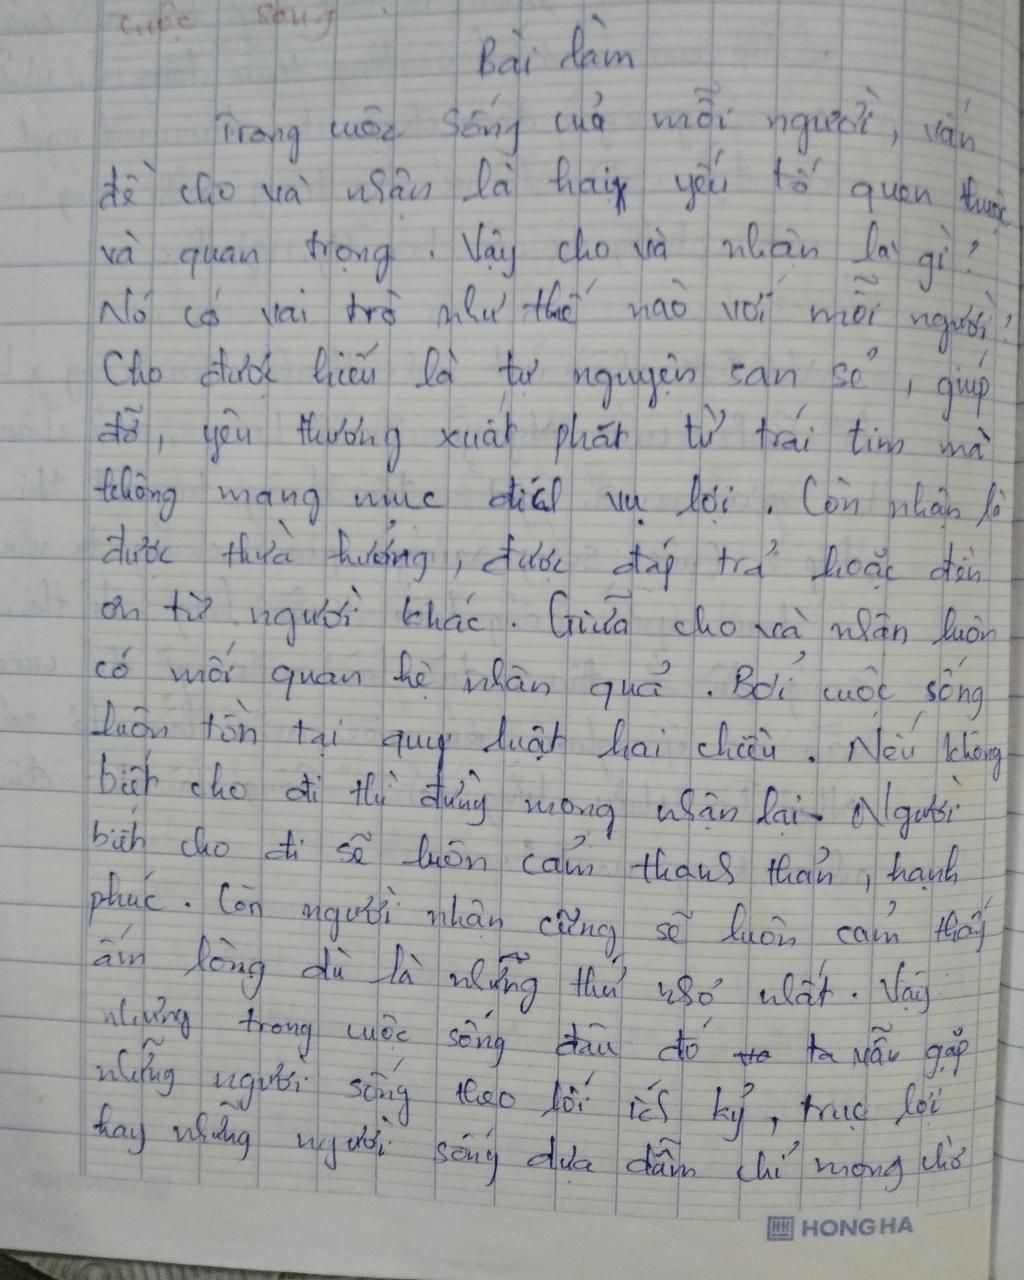 cuộc sống
Bài làm
Trong cuộc sống của mỗi người, vấn
đề cho và nhận là hai yếu tố quen thuộc
và quan trọng. Vậy cho và nhận là gì?
Nó có vai trò như thế nào với mỗi người?
Cho được hiểu là tự nguyện san sẻ, giúp
đỡ, yêu thương xuất phát từ trái tim mà
không mang mục đích vụ lợi. Còn nhận là
được thừa hưởng, được đáp trả hoặc đền
ơn từ người khác. Giữa cho và nhận luôn
có mối quan hệ nhân quả. Bởi cuộc sống
luôn tồn tại quy luật hai chiều. Nếu không
biết cho đi thì đừng mong nhận lại. Người
biết cho đi sẽ luôn cảm thanh thản, hạnh
phúc. Còn người nhận cũng sẽ luôn cảm thấy
ấm lòng dù là những thứ nhỏ nhất. Vậy
nhưng trong cuộc sống đâu đó ta vẫn gặp
những người sống theo lối ích kỷ, trục lợi
hay những người sống dựa dẫm chỉ mong chờ
HONG HA